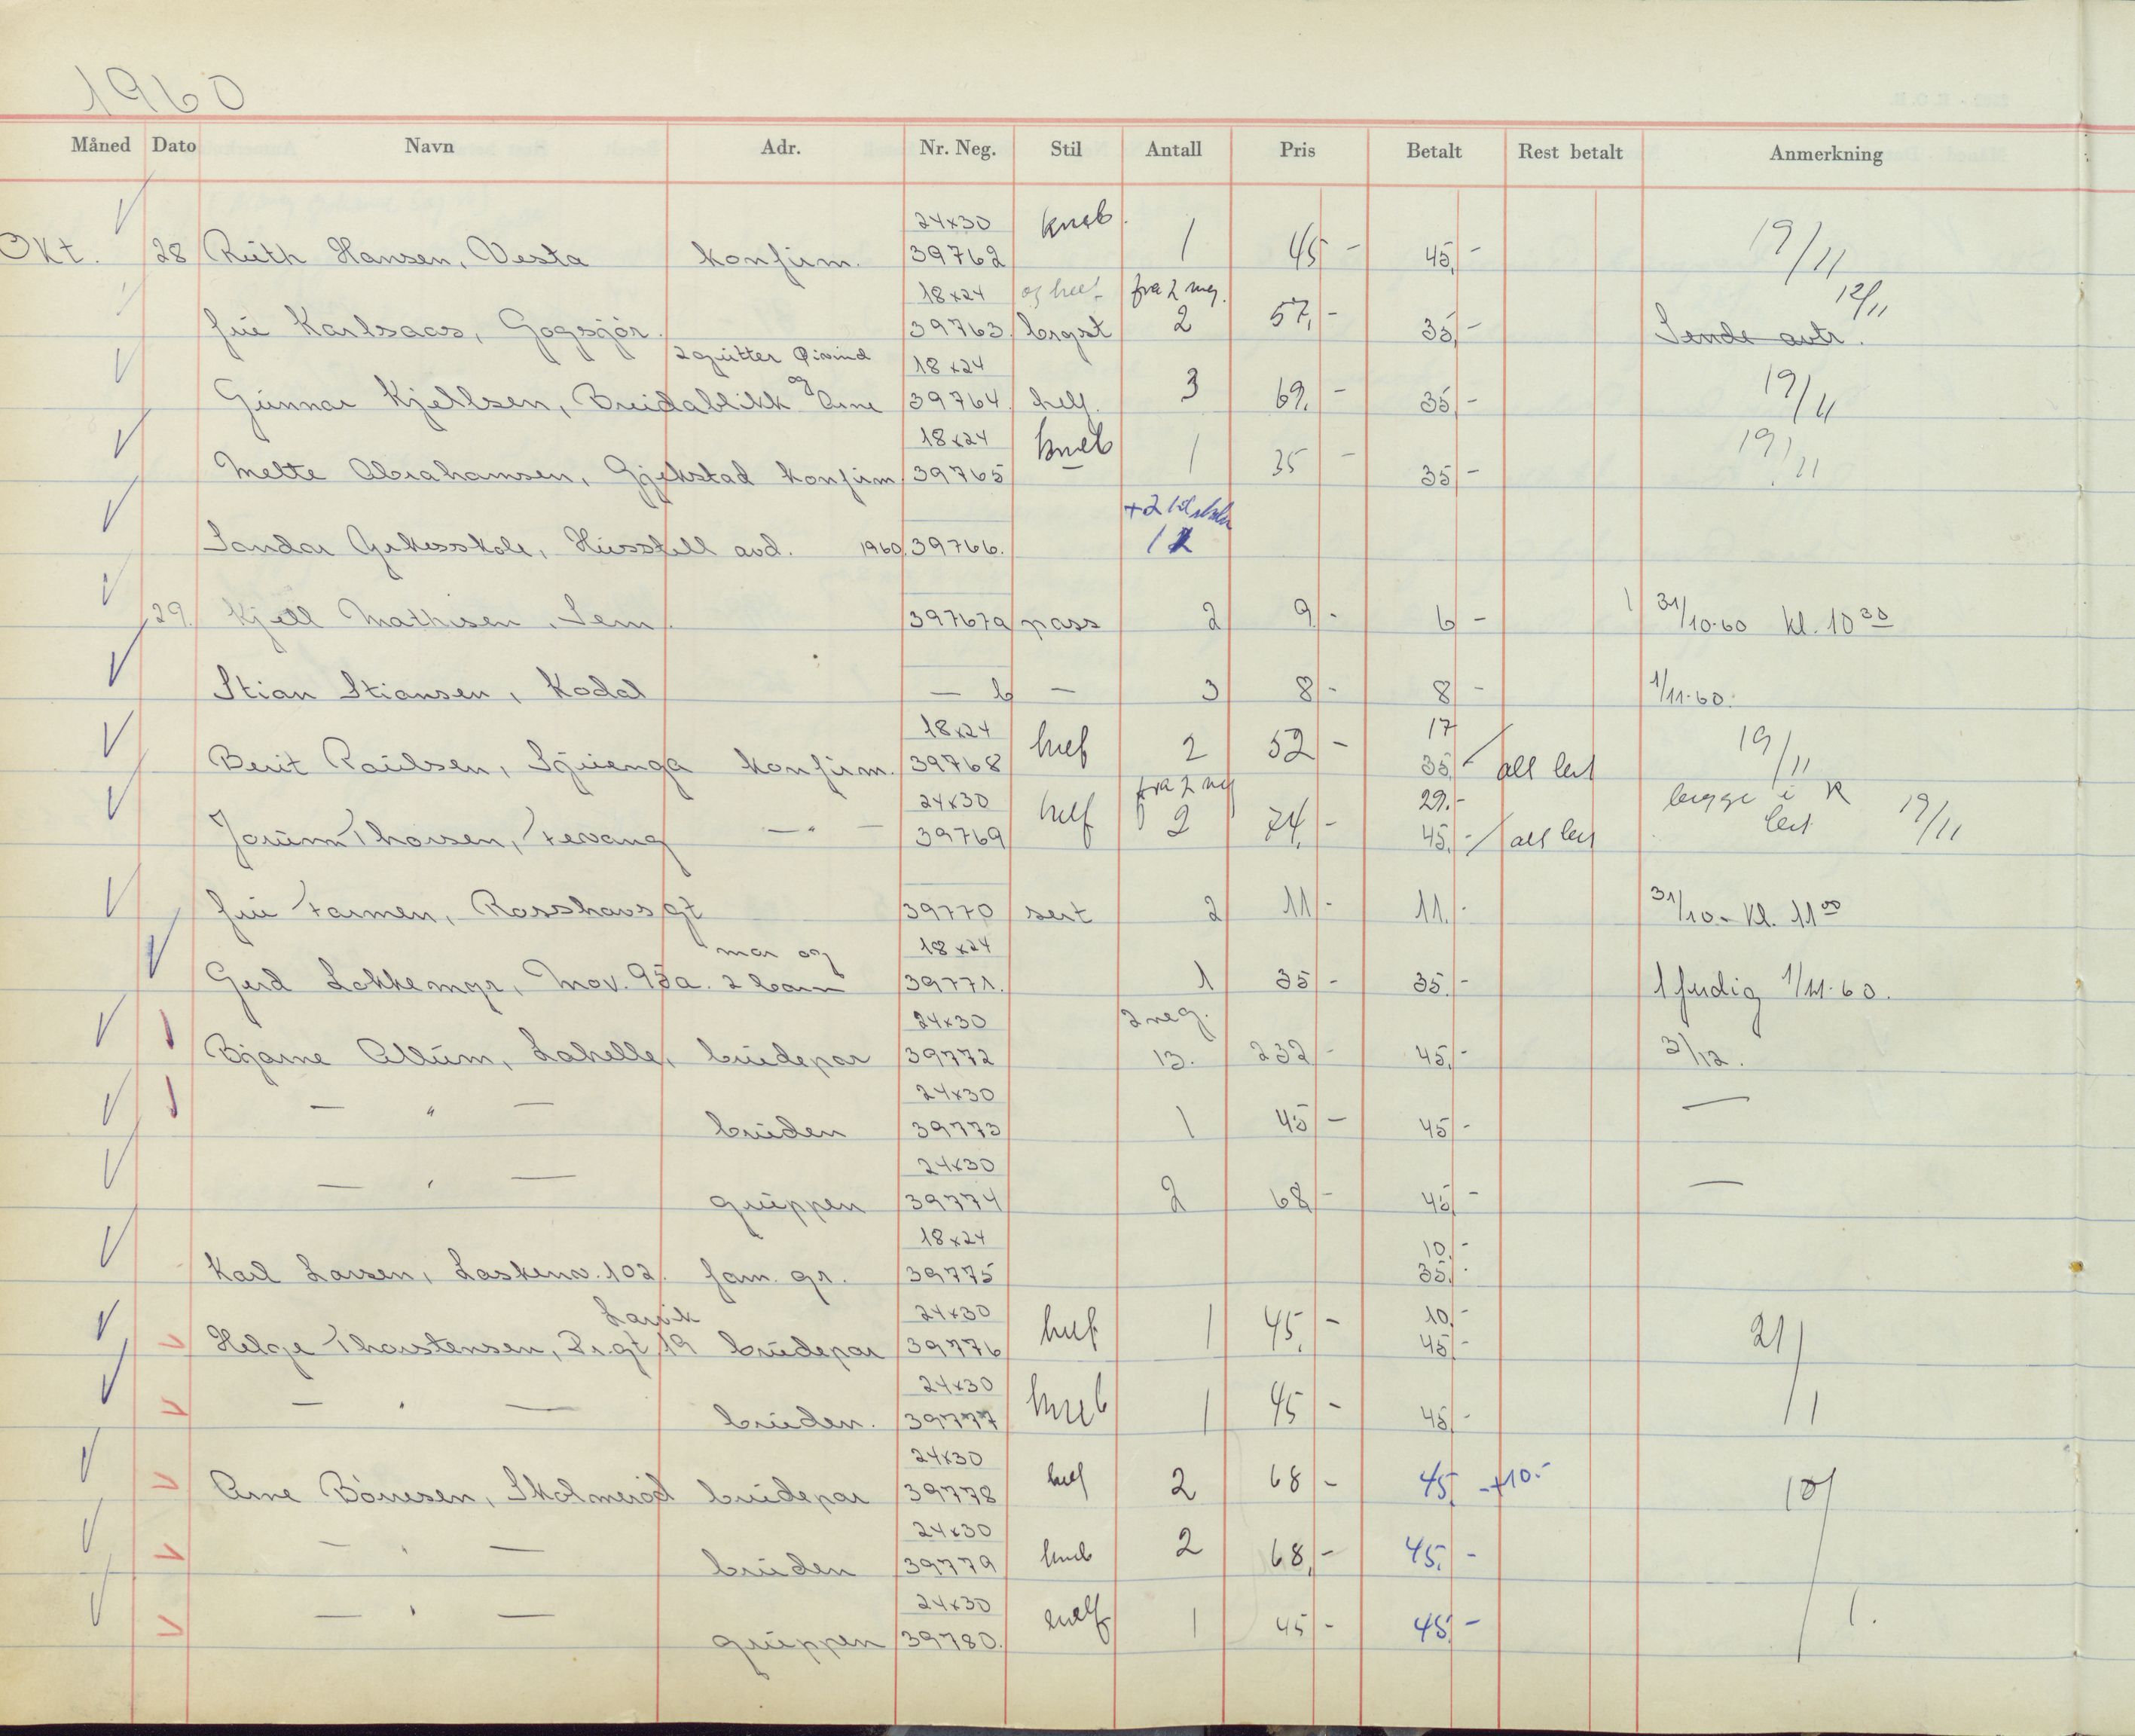 1960
Måned Dato Navn Adr. Nr. Neg. Stil Antall Pris Betalt Rest betalt Anmerkning
24x30
Okt. 28 Ruth Hansen, Vesta konfirm. 39762 1 45,- 45,- 19/11
18x24 fra 2 neg. 12/11
fru Karlsaas, Gogsjør. 39763 2 57,- 35,- Sende avtr.
2 gutter Øivind 18x24
Gunnar Kjellsen, Breidablikk og Arne 39764 helf. 3 69,- 35,- 19/11
18x24
Mette Abrahamsen, Gjekstad konfirm 39765 1 35 - 35,- 19/11
+2
Sandar Yrkesskole, Husstell avd. 1960 39766. 12
29. Kjell Mathisen, Sem. 39767a pass 2 9,- 6,- 31/10-60 kl. 10 30
Stian Stiansen, Kodal — b — 3 8,- 8,- 1/11-60.
18x24 17
Berit Paulsen, Sjuenga konfirm. 39768 2 52,- 35,- 19/11
24x30 fra 2 neg 29,-
Jorunn Thorsen, Fevang — " — 39769 helf 2 74,- 45,- 19/11
fru Farmen, Rosshavs gt 39770 sert 2 11,- 11,- 31/10 - kl. 11 00
mor og 18x24
Gerd Lokkemyr, Mov. 95a. 2 barn 39771. 1 35,- 35,- 1 ferdig 1/11-60.
24x30 2 neg.
Bjarne Allum, Lahelle, brudepar 39772 13. 232,- 45,- 3/12.
24x30
— " — bruden 39773 1 45,- 45,- —
24x30
— " — gruppen 39774 2 68,- 45,- —
18x24 10,-
Karl Larsen, Laskenv. 102. fam. gr. 39775 35,-
Larvik 24x30 10,-
Helge Thorstensen, Pr.gt 19 brudepar 39776 helf 1 45,- 45,- 21/1
24x30
— " — bruden. 39777 1 45,- 45,-
24x30
Arne Bönesen, Skolmeröd brudepar 39778 helf 2 68,- 45,- +10.-
24x30
— " — bruden 39779 2 68,- 45,-
24x30
— " — gruppen 39780. 1 45,- 45,-